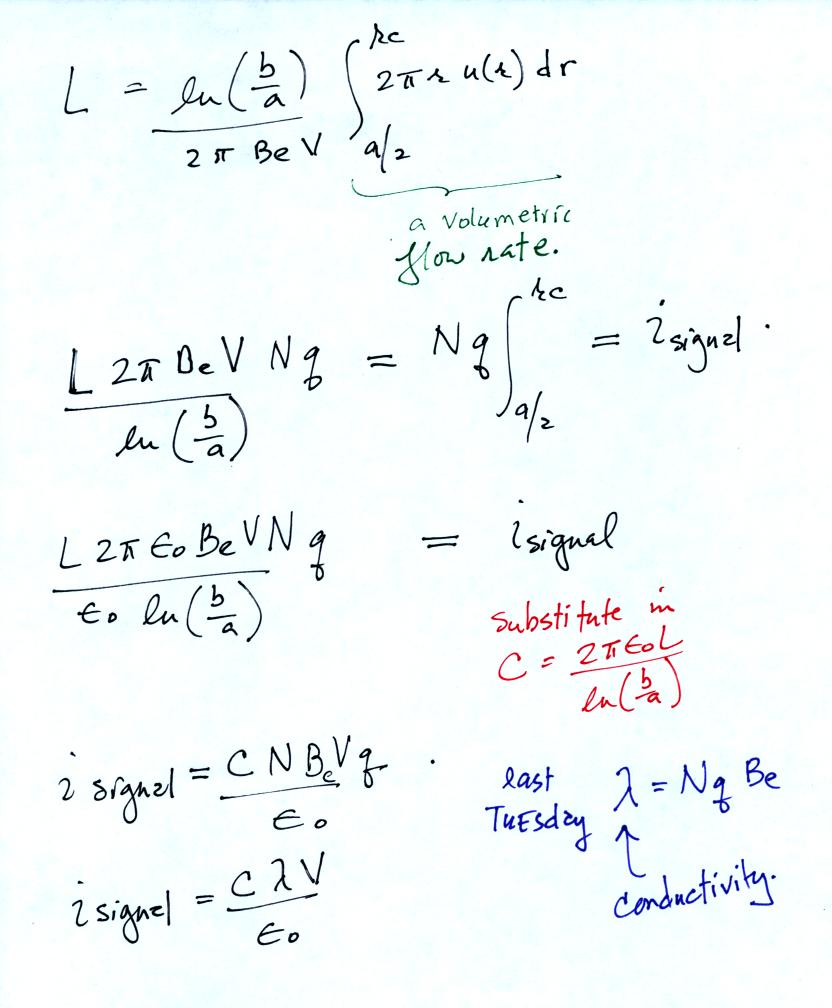 L = ln(b/a) / 2π Be V ∫_{a/2}^{rc} 2π r u(r) dr
a volumetric
flow rate.
L 2π Be V N q / ln(b/a) = N q ∫_{a/2}^{rc} = i signal .
L 2π ϵo Be V N q / ϵo ln(b/a) = i signal
Substitute in
C = 2π ϵo L / ln(b/a)
i signal = C N Be V q / ϵo .
last
Tuesday λ = N q Be
i signal = C λ V / ϵo
conductivity.